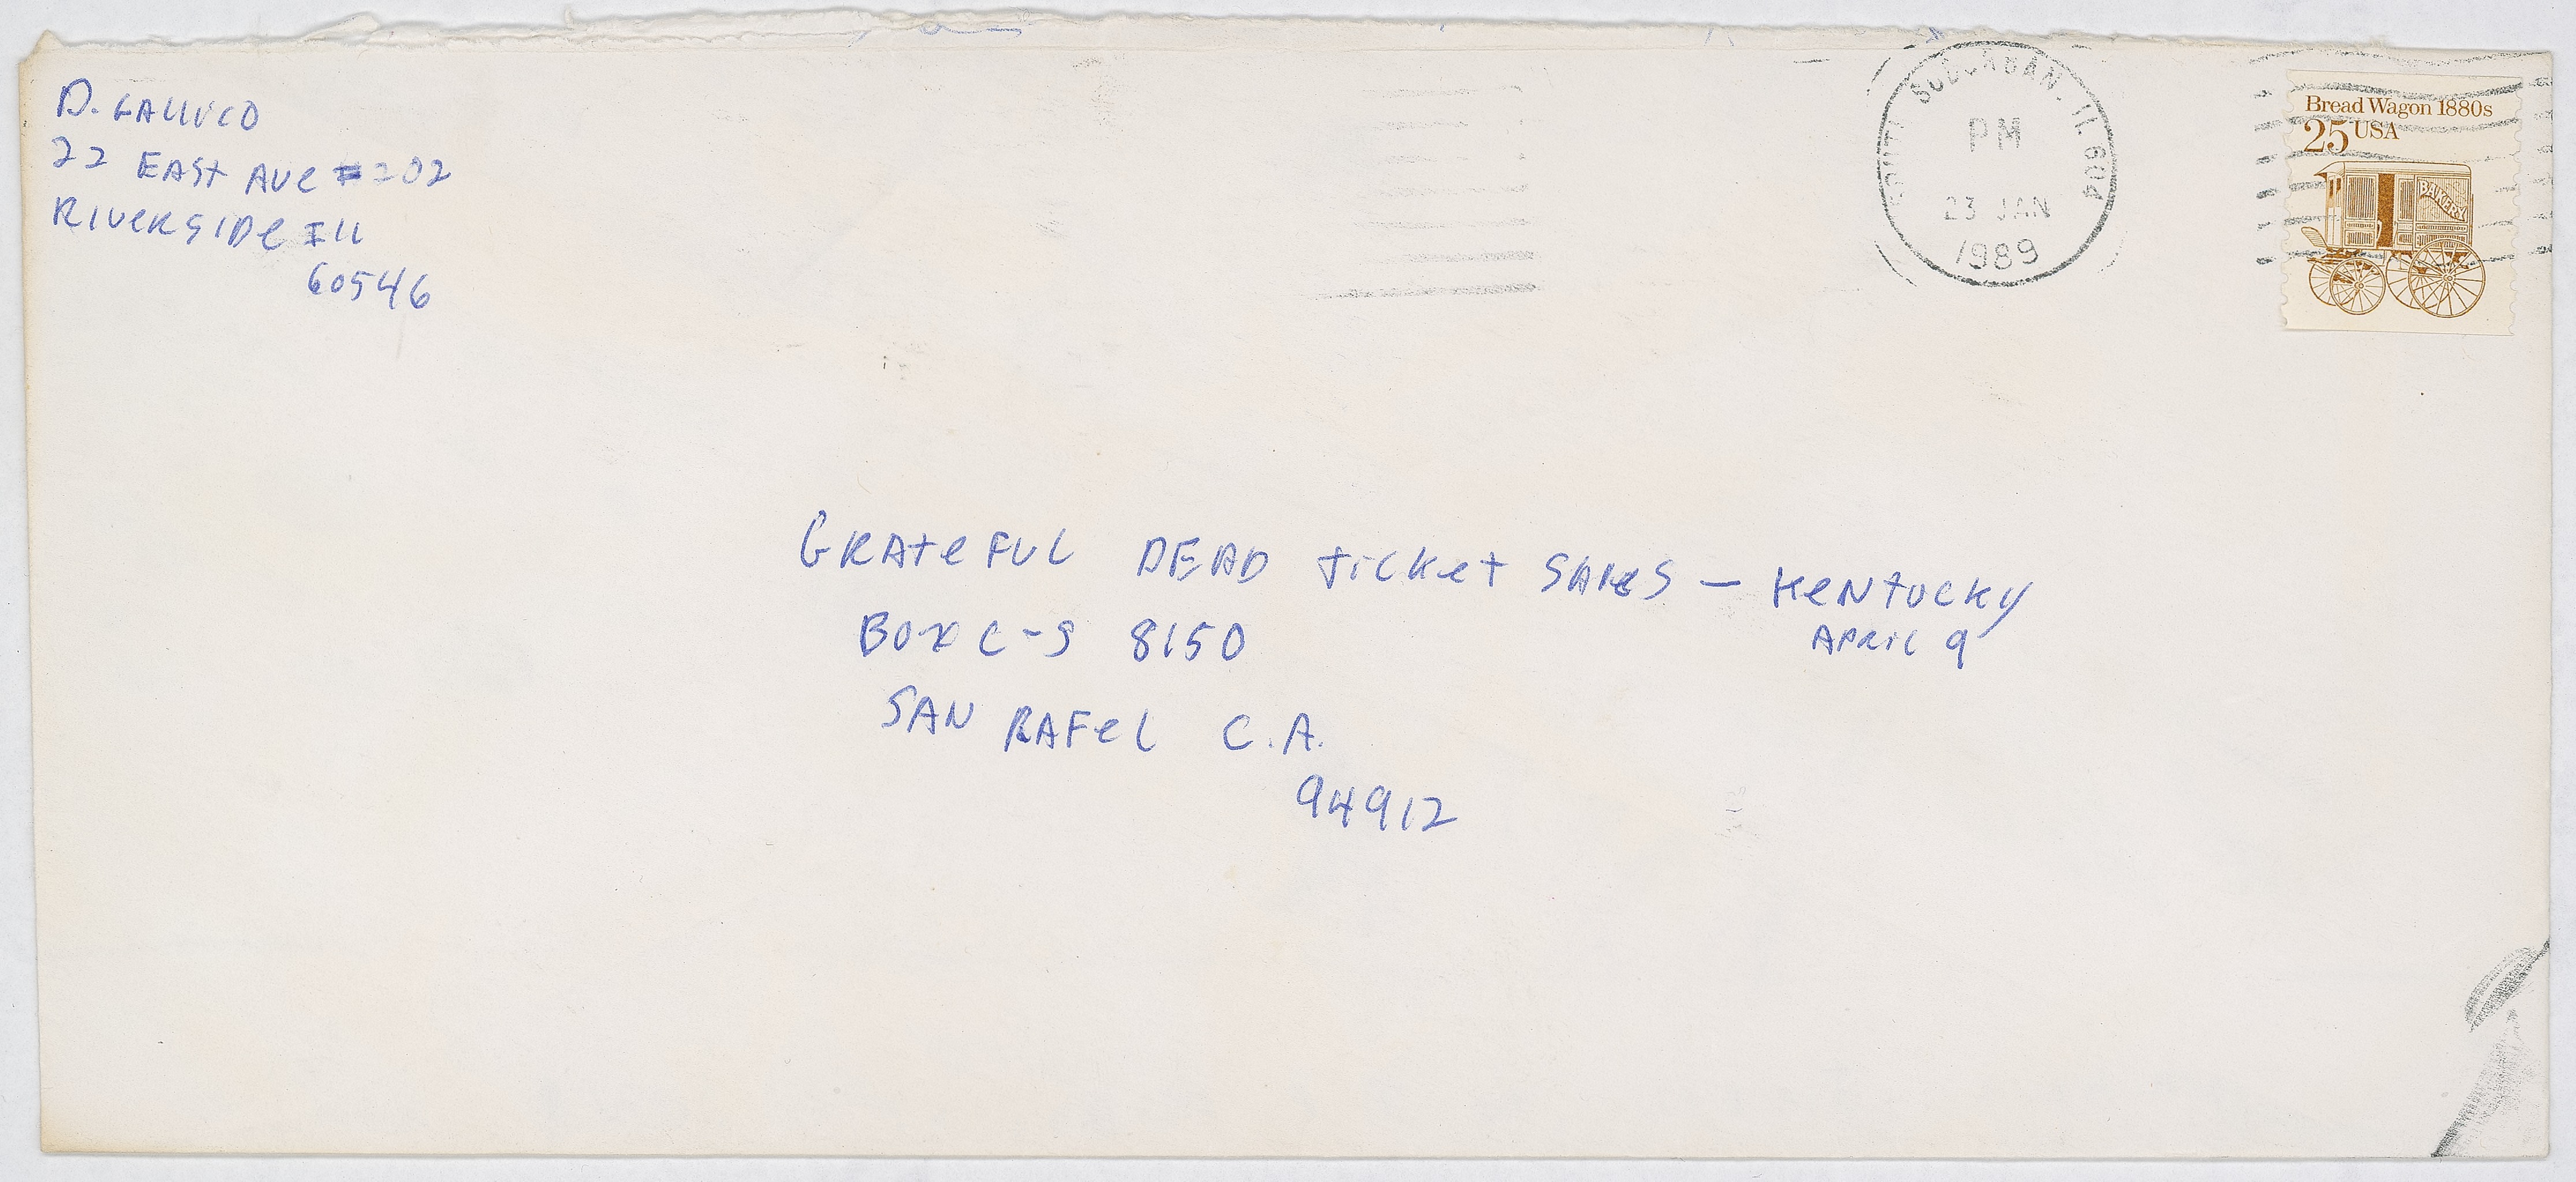 D. GALLUCO
22 EAST AVE # 202
RIVERSIDE Ill
60546
SOUTH SUBURBAN. IL 604
PM
23 JAN
1989
Bread Wagon 1880s
25 USA
BAKERY
GRATEFUL DEAD TICKET SALES — KENTUCKY
APRIL 9
BOX C-S 8150
SAN RAFEL C.A.
94912